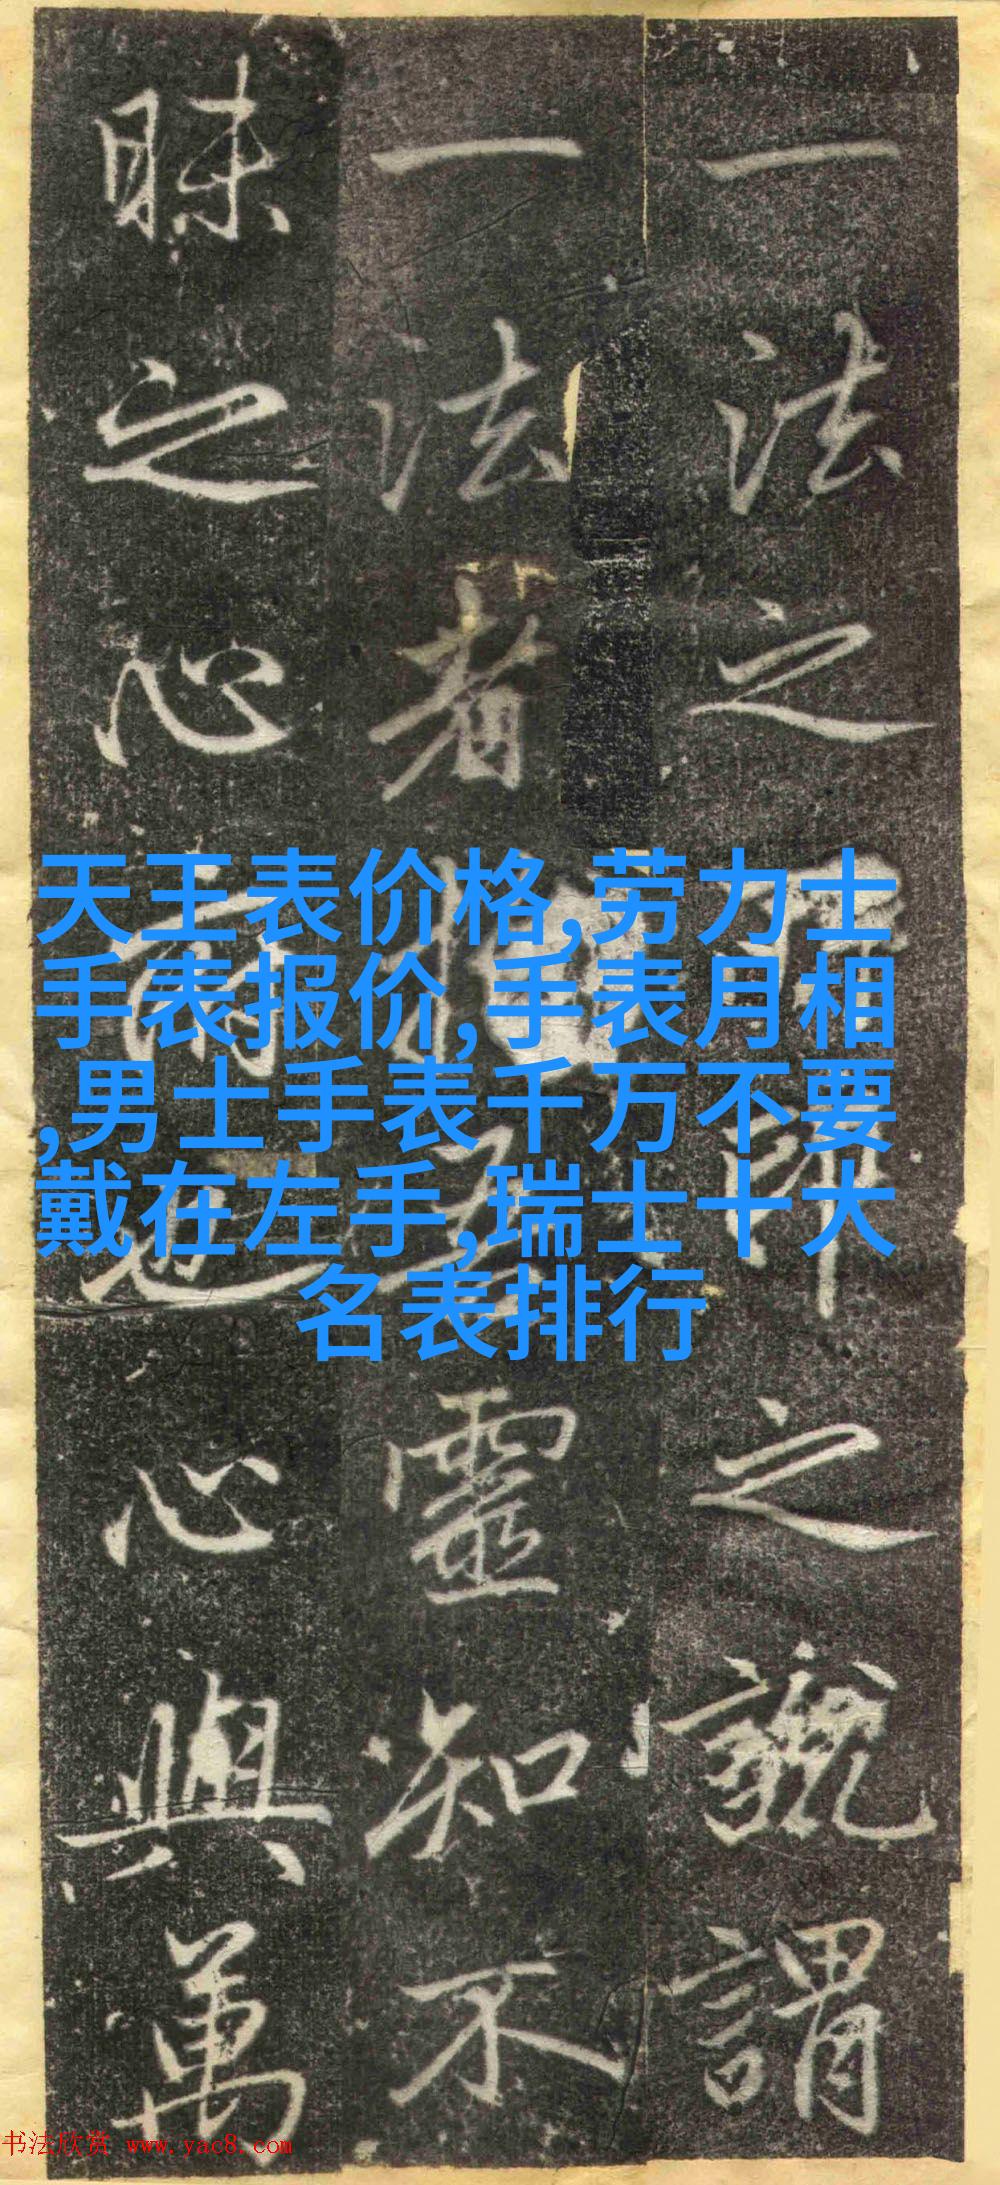 一法之之說謂
一法者靈知不
昧之心也心與萬
天王表价格,劳力士
手表报价,手表月相
,男士手表千万不要
戴在左手,瑞士十大
名表排行
书法欣赏 www.yac8.com